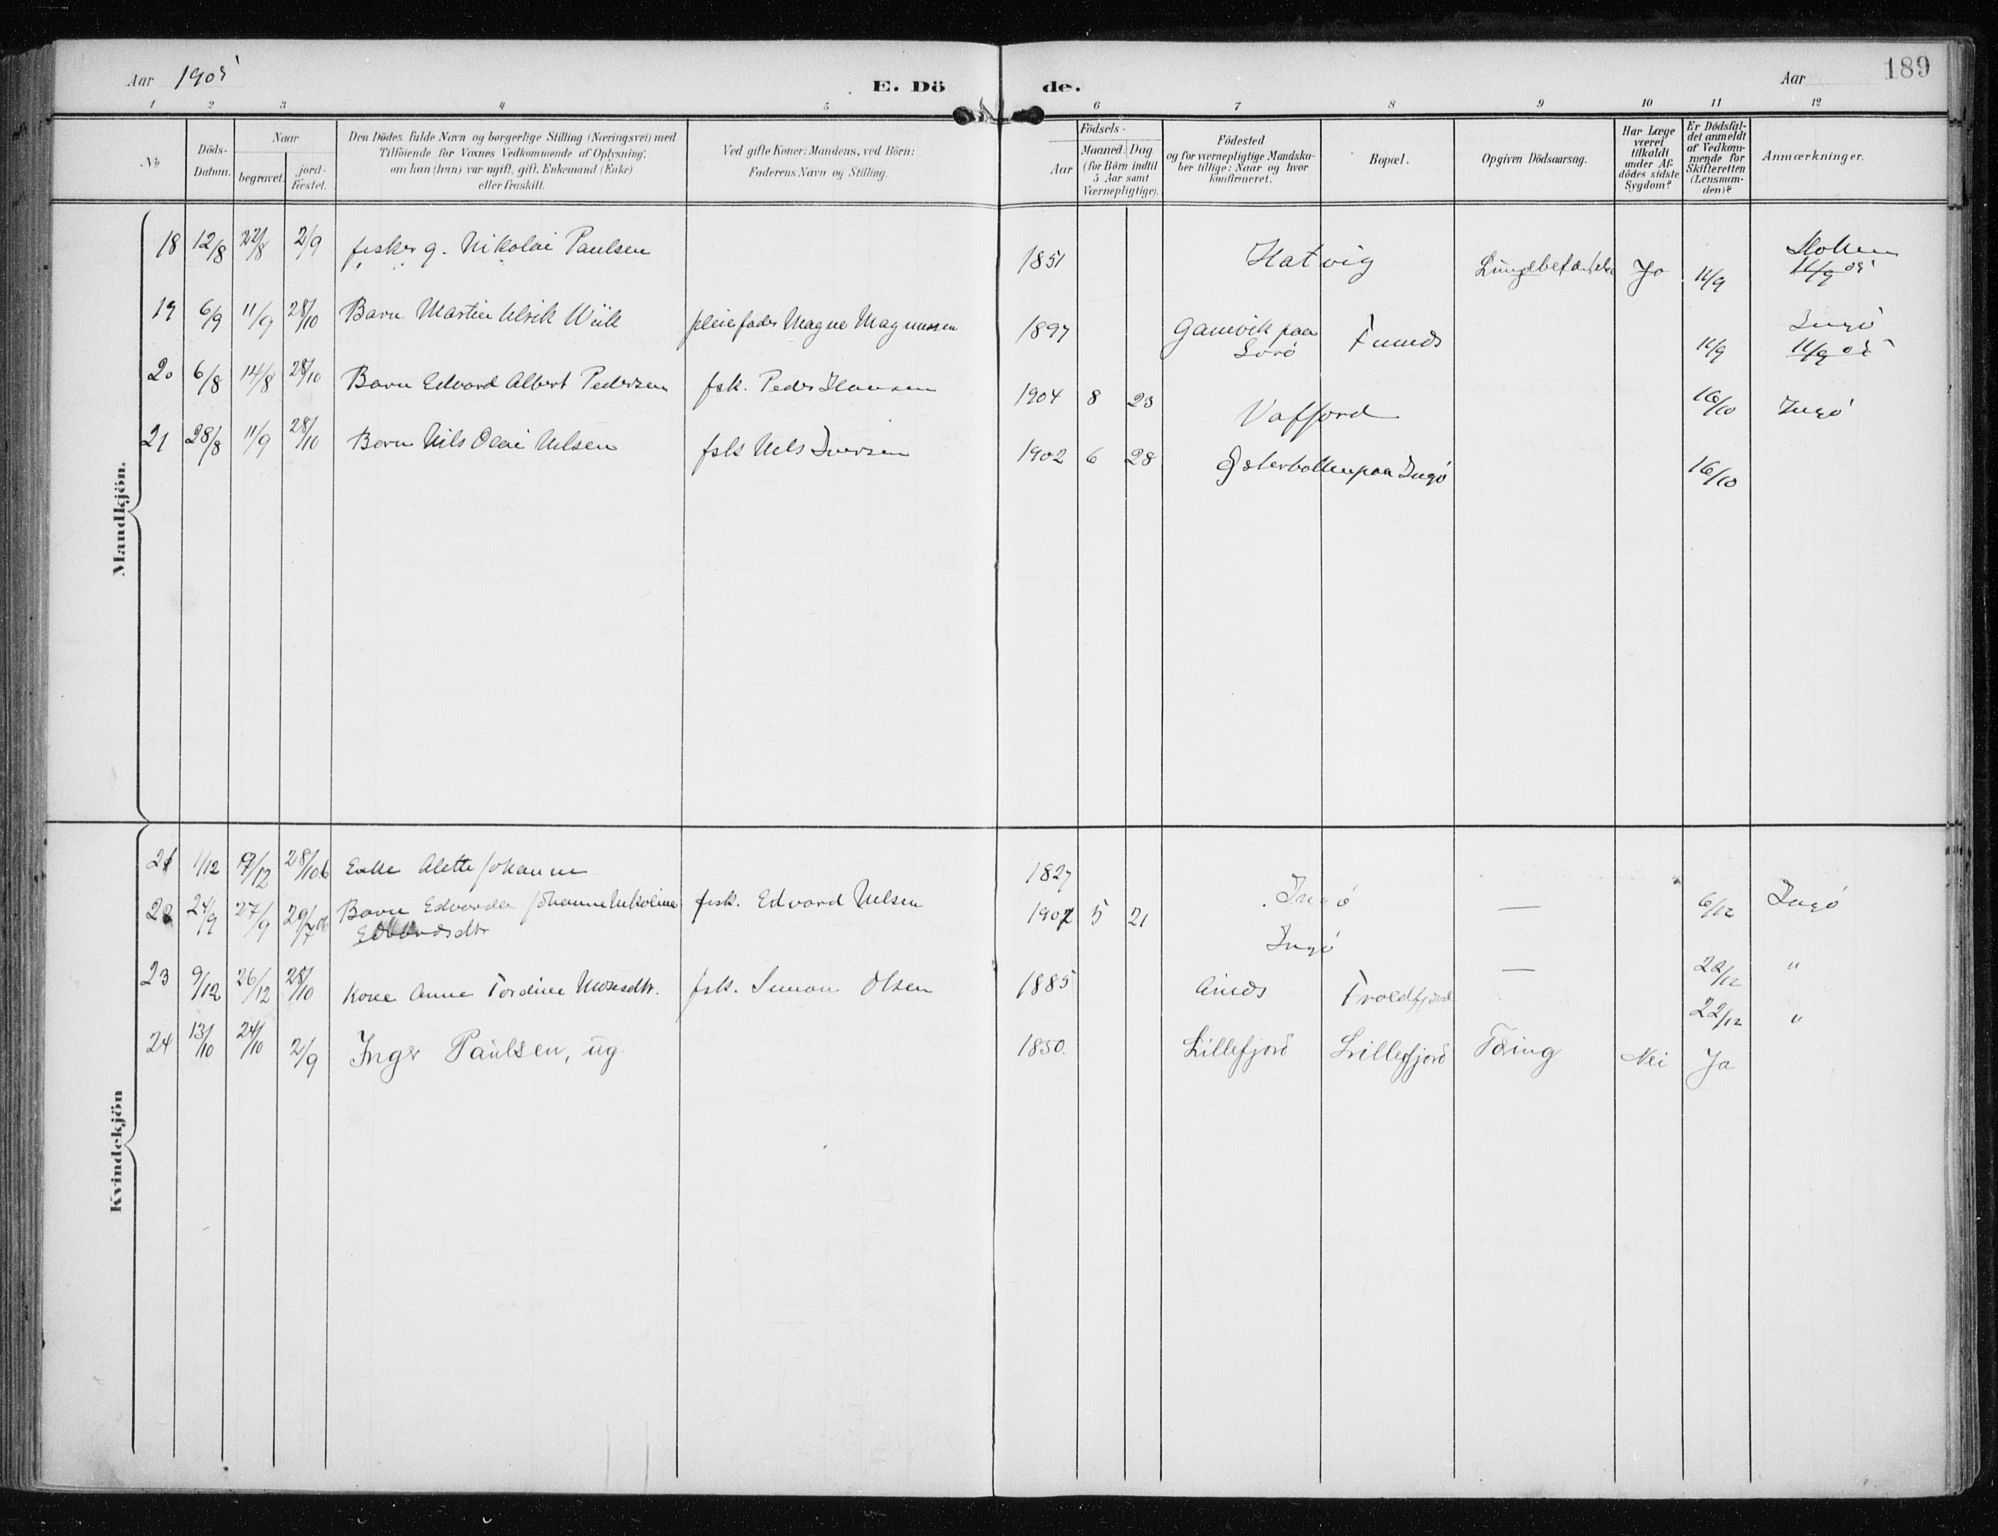 Aar 1905
E. Döde.
Aar
189
1 2 3 4 5 6 7 8 9 10 11 12
No
Döds-Datum.
Naar
begravet.
jord-fæstet.
Den Dödes fulde Navn og borgerlige Stilling (Næringsvei) med
Tilföiende for Voxnes Vedkommende af Oplysning,
om han (hun) var ugift, gift, Enkemand (Enke)
eller fraskilt.
Ved gifte Koner: Mandens, ved Börn:
Faderens Navn og Stilling.
Födsels-
Aar
Maaned. Dag.
(for Börn indtil
5 Aar samt
Værnepligtige).
Födested
og for værnepligtige Mandska-
ber tillige: Naar og hvor
konfirmeret.
Bopæl.
Opgiven Dödsaarsag.
Har Læge
været
tilkaldt
under Af-
dödes sidste
Sygdom?
Er Dödsfal-
det anmeldt
af Vedkom-
mende for
Skifteretten
(Lensman-
den)?
Anmærkninger.
Mandkjön.
18 12/8 22/8 2/9 fisker g. Nikolai Paulsen 1851 Hatvig Lungebetændelse Ja 11/9 11/9 05
19 6/9 11/9 28/10 Barn Martin Ulrik Wiik pleiefader Magne Magnussen 1897 Gamvik paa Sørø 11/9 Ingö 11/9 05
20 6/8 14/8 28/10 Barn Edvard Albert Pedersen fsk. Peder Hansen 1904 8 23 Vafjord 16/10 Ingö
21 28/8 11/9 28/10 Barn Nils Olai Nilsen fsk Nils Iversen 1902 6 28 paa Ingö 16/10
Kvindekjön
21 1/12 9/12 28/10 06 Enke Alette Johanne 1827 Ingö — 6/12 Ingö
22 24/9 27/9 29/7 06 Barn Edvarda Johanne Nikoline Edvardsdtr fsk. Edvard Nilsen 1902 5 21 Ingö — 22/12 "
23 9/12 26/12 28/10 Kone Anne Tordine Mosesdtr. fsk. Simon Olsen 1885 Troldfjord 22/12 "
24 13/10 24/10 2/9 Inger Paulsen, ug. 1850. Lillefjord Lillefjord Tæring Nei Ja